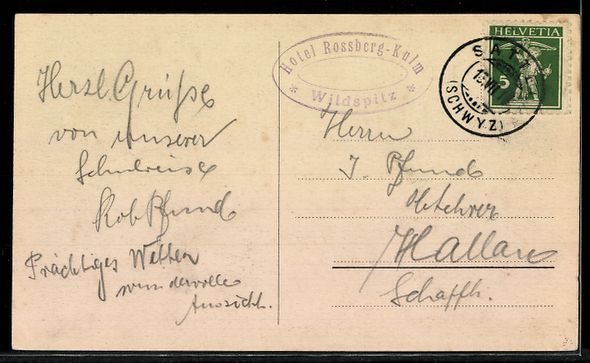 Herzl. Grüsse
von unserer
Schulreise
Rob Pfund
Prächtiges Wetter
wundervolle
Aussicht.
Hotel Rossberg-Kulm
* Wildspitz *
HELVETIA
5
SATTEL
(SCHWYZ)
Herrn
J. Pfund
Hallau
Schaffh.